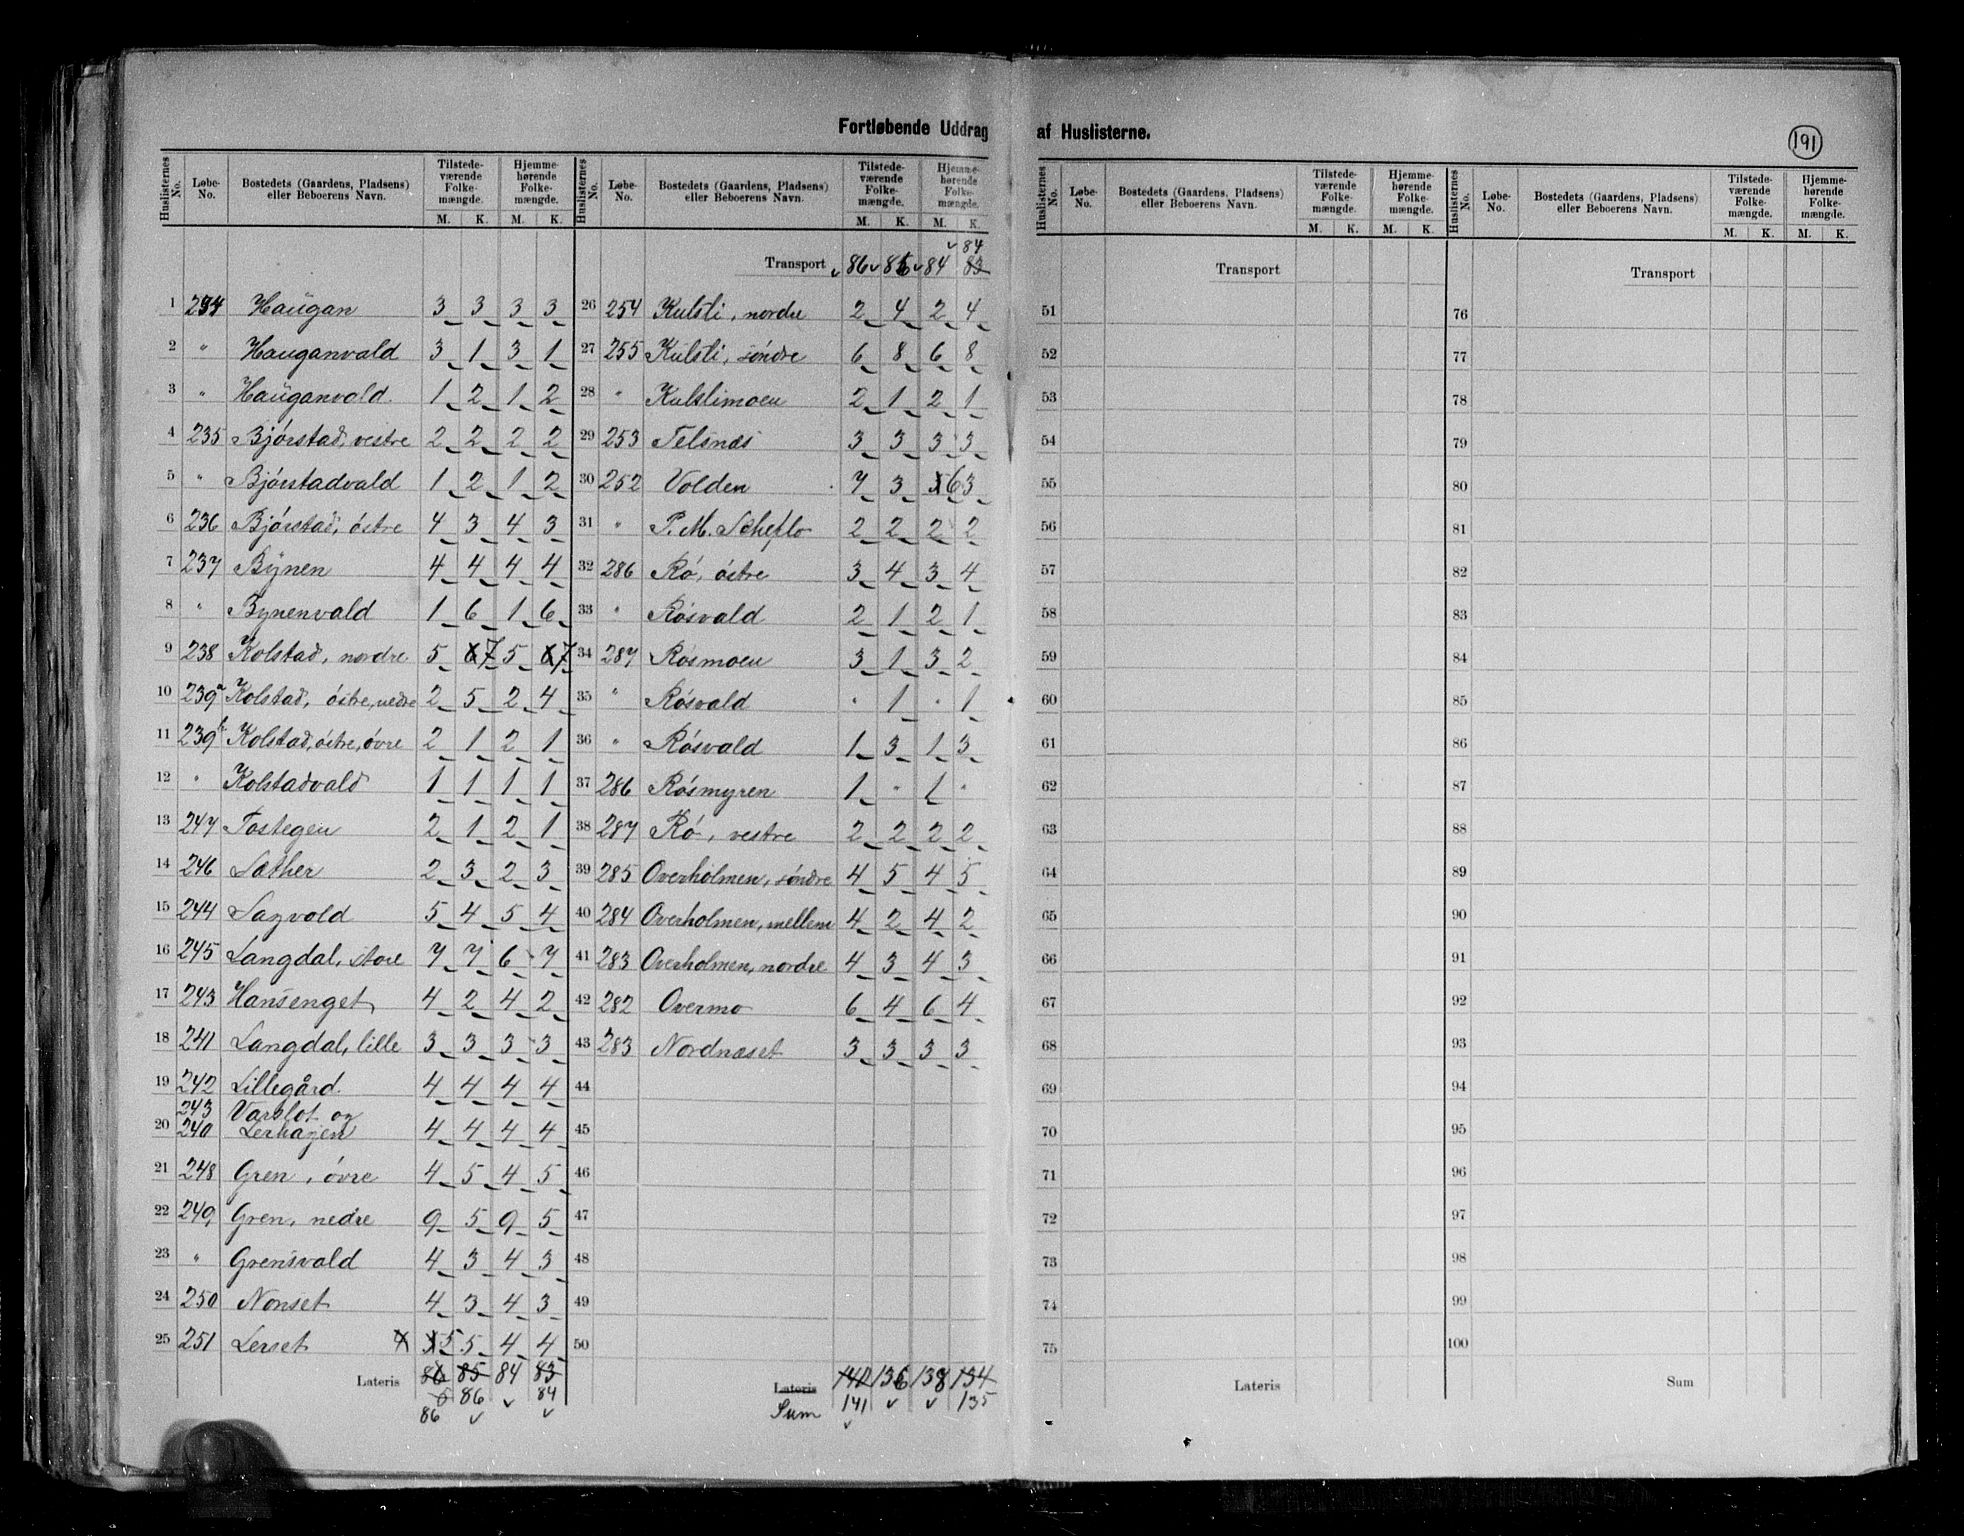 Fortløbende Uddrag af Huslisterne.
191
Huslisternes No. Løbe-No. Bostedets (Gaardens, Pladsens) eller Beboerens Navn. Tilstedeværende Folkemængde. M. K. Hjemmehørende Folkemængde. M. K.
1 234 Haugan 3 3 3 3
2 " Hauganvald 3 1 3 1
3 " Hauganvald. 1 2 1 2
4 235 Bjørstad, vestre 2 2 2 2
5 " Bjørstadvald 1 2 1 2
6 236 Bjørstad, østre 4 3 4 3
7 237 Bynen 4 4 4 4
8 " Bynenvald 1 6 1 6
9 238 Kolstad, nordre 5 6 7 5 6 7
10 239a Kolstad, østre, nedre 2 5 2 4
11 239b Kolstad, østre, øvre 2 1 2 1
12 " Kolstadvald 1 1 1 1
13 247 Tostegen 2 1 2 1
14 246 Sæther 2 3 2 3
15 244 Sagvold 5 4 5 4
16 245 Langdal, store 7 7 6 7
17 243 Hansenget 4 2 4 2
18 241 Langdal, lille 3 3 3 3
19 242 Lillegård. 4 4 4 4
243 Varslot og
20 240 Lerhagen 4 4 4 4
21 248 Gren, øvre 4 5 4 5
22 249 Gren, nedre 9 5 9 5
23 " Grensvald 4 3 4 3
24 250 Nonset 4 3 4 3
25 251 Lerset 5 5 4 4
Lateris 86 85 84 83
86 84
86
Huslisternes No. Løbe-No. Bostedets (Gaardens, Pladsens) eller Beboerens Navn. Tilstedeværende Folkemængde. M. K. Hjemmehørende Folkemængde. M. K.
84
Transport 86 86 84 83
26 254 Kulsti, nordre 2 4 2 4
27 255 Kulsti, søndre 6 8 6 8
28 " Kulstimoen 2 1 2 1
29 253 Telsnes 3 3 3 3
30 252 Volden 7 3 6 3
31 " P. M. Scheflo 2 2 2 2
32 286 Rø, østre 3 4 3 4
33 " Røsvald 2 1 2 1
34 287 Røsmoen 3 1 3 2
35 " Røsvald " 1 " 1
36 " Røsvald 1 3 1 3
37 286 Røsmyren 1 " 1 "
38 287 Rø, vestre 2 2 2 2
39 285 Overholmen, søndre 4 5 4 5
40 284 Overholmen, mellem 4 2 4 2
41 283 Overholmen, nordre 4 3 4 3
42 282 Overmo 6 4 6 4
43 283 Nordnæset 3 3 3 3
44
45
46
47
48
49
50
Lateris 140 136 138 134
Sum 141 135
Huslisternes No. Løbe-No. Bostedets (Gaardens, Pladsens) eller Beboerens Navn. Tilstedeværende Folkemængde. M. K. Hjemmehørende Folkemængde. M. K.
Transport
51
52
53
54
55
56
57
58
59
60
61
62
63
64
65
66
67
68
69
70
71
72
73
74
75
Lateris
Huslisternes No. Løbe-No. Bostedets (Gaardens, Pladsens) eller Beboerens Navn. Tilstedeværende Folkemængde. M. K. Hjemmehørende Folkemængde. M. K.
Transport
76
77
78
79
80
81
82
83
84
85
86
87
88
89
90
91
92
93
94
95
96
97
98
99
100
Sum